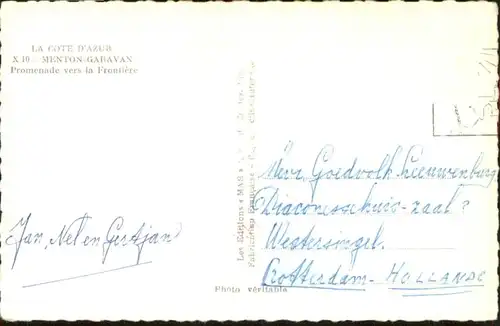 LA COTE D'AZUR
X 10 - MENTON-GARAVAN
Promenade vers la Frontière
Jan, Nel en Gertjan
Les Editions « MAR »
Fabrication Française
Mevr. Goedvolk Leeuwenburg
Diaconessehuis - zaal 7
Westersingel.
Rotterdam - HOLLANDE
Photo véritable